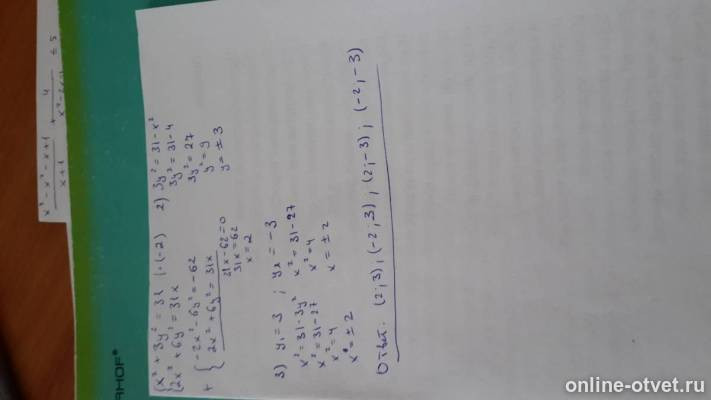 x³ - x² - x + 1 / x + 1 + 4 / ≤ 5
{ x² + 3y² = 31 | · (-2)
{ 2x² + 6y² = 31x
+ { -2x² - 6y² = -62
2x² + 6y² = 31x
31x - 62 = 0
31x = 62
x = 2
2) 3y² = 31 - x²
3y² = 31 - 4
3y² = 27
y² = 9
y = ± 3
3) y₁ = 3 ; y₂ = -3
x² = 31 - 3y²
x² = 31 - 27
x² = 4
x = ± 2
x² = 31 - 27
x² = 4
x = ± 2
Ответ: (2; 3); (-2; 3); (2; -3); (-2; -3)
online-otvet.ru